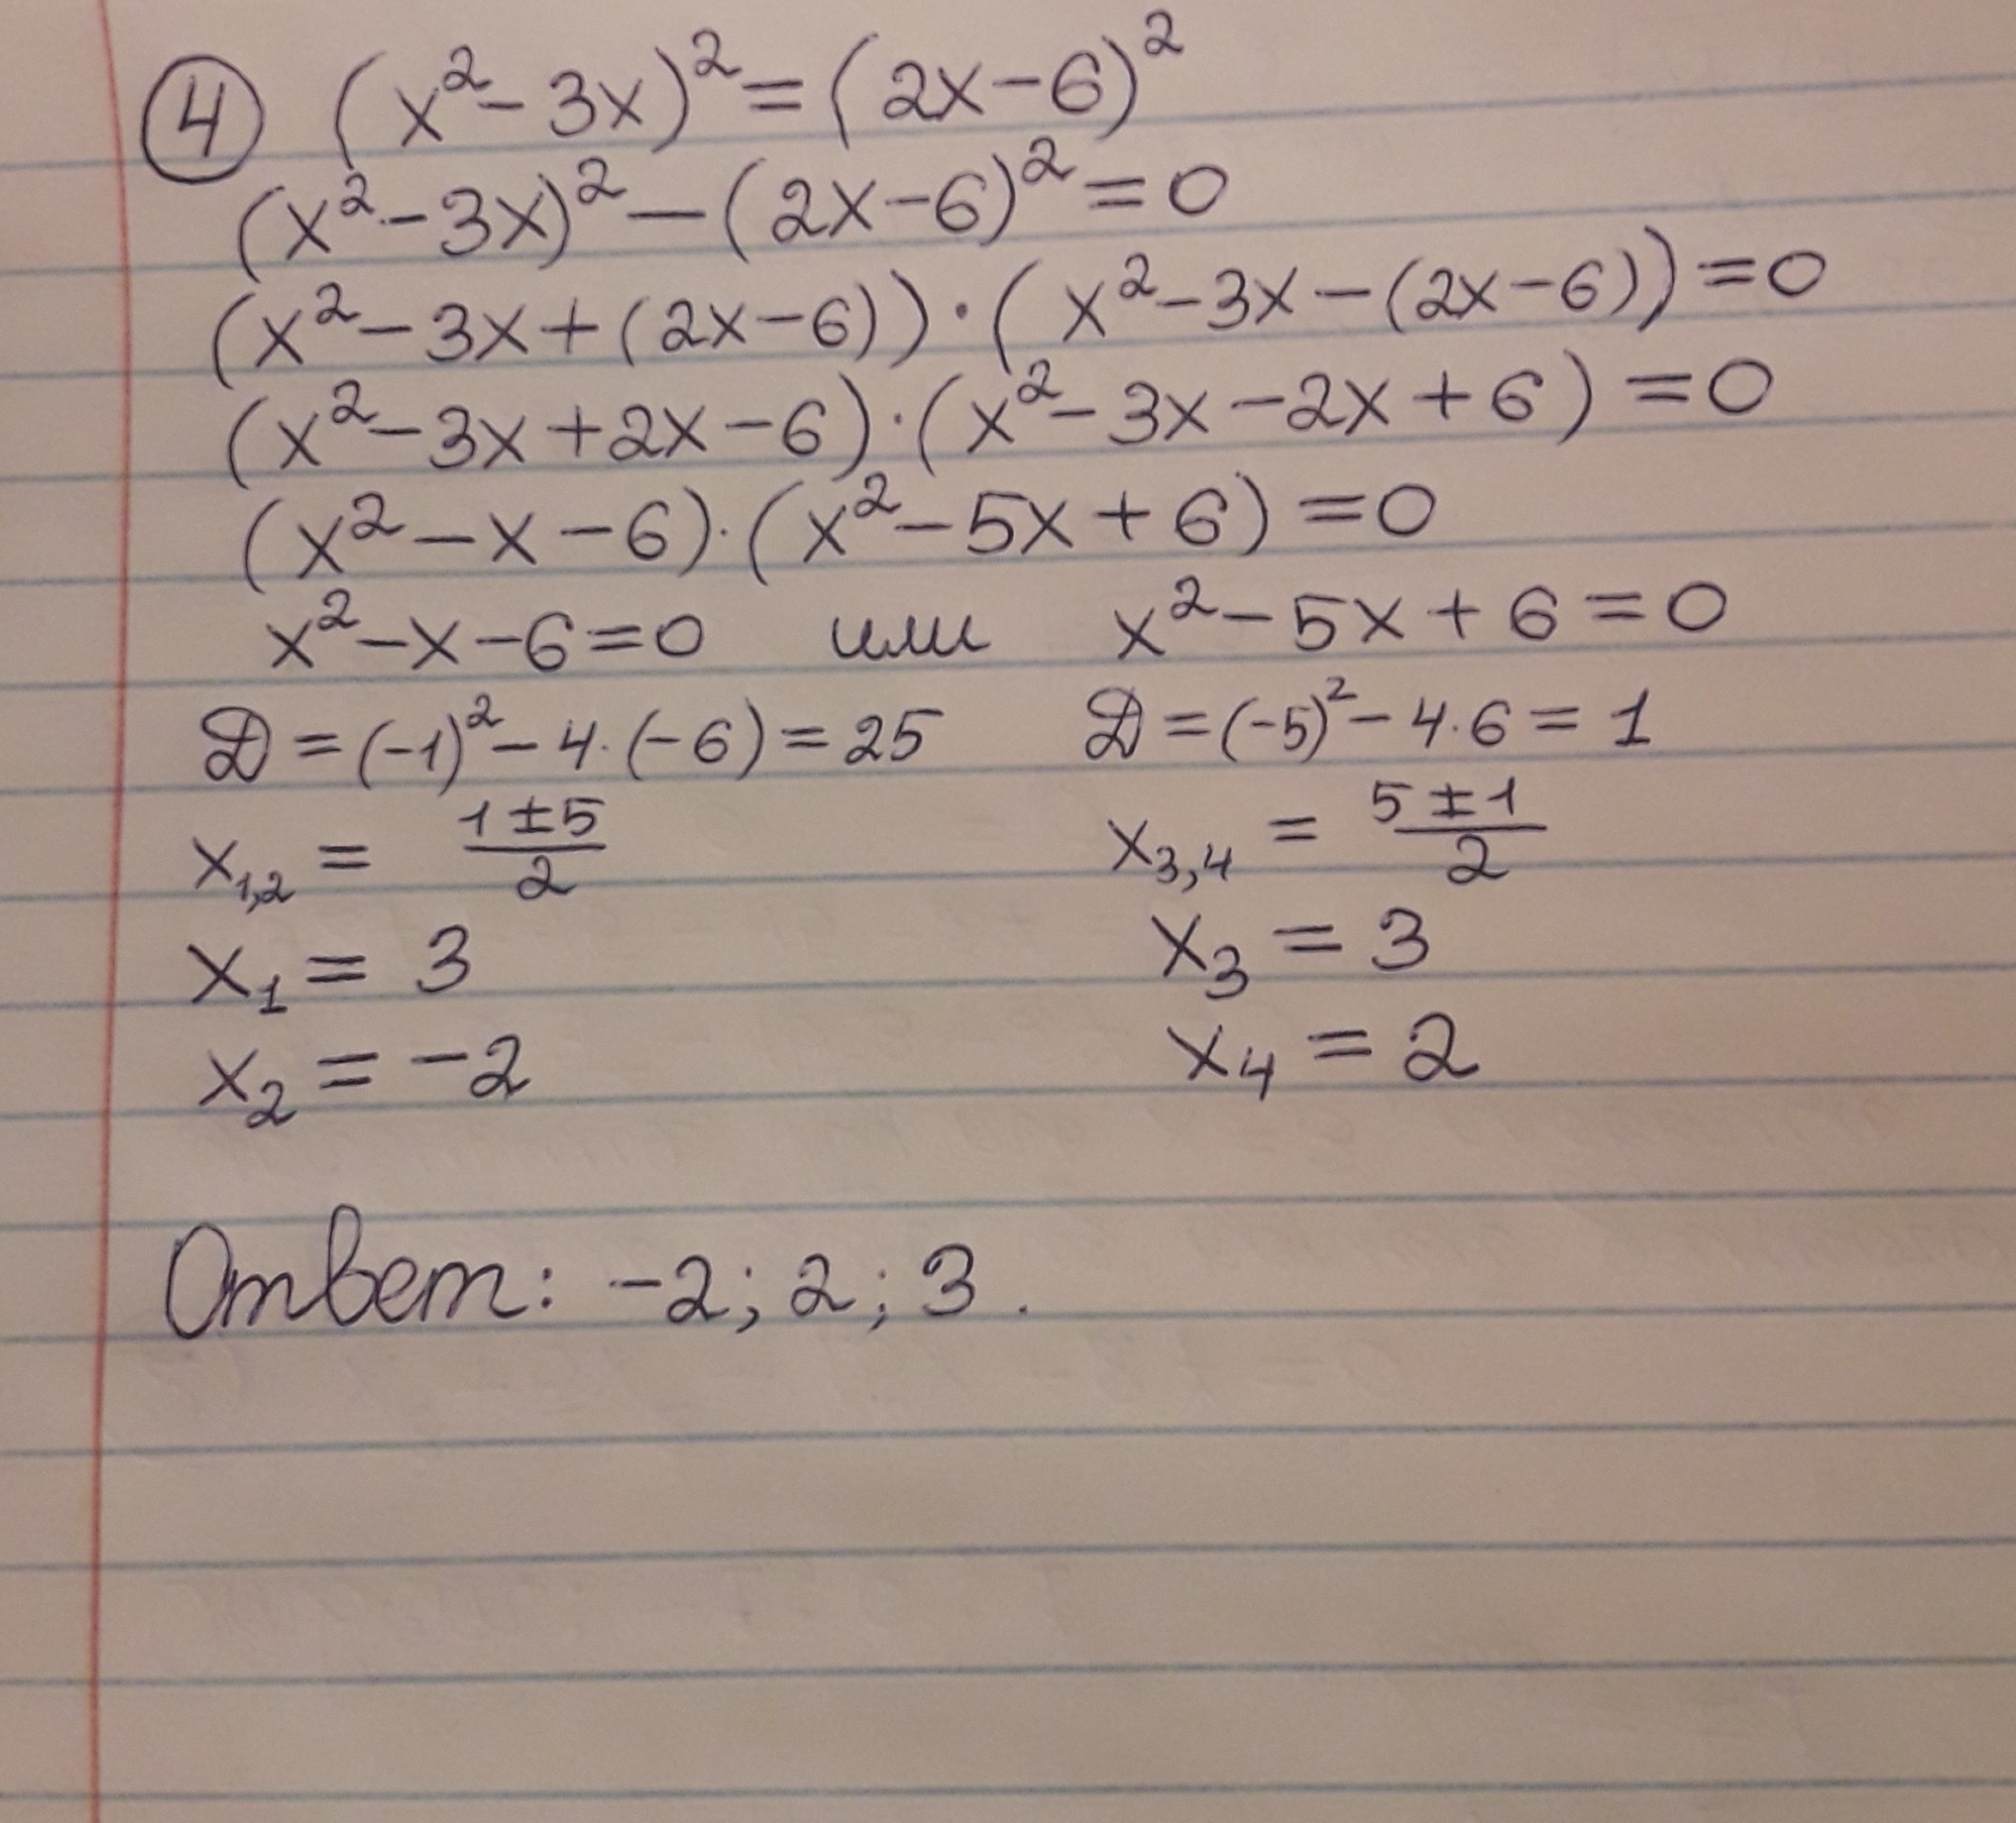 ④ (x²-3x)²=(2x-6)²
(x²-3x)²-(2x-6)²=0
(x²-3x+(2x-6))·(x²-3x-(2x-6))=0
(x²-3x+2x-6)·(x²-3x-2x+6)=0
(x²-x-6)·(x²-5x+6)=0
x²-x-6=0 или x²-5x+6=0
D=(-1)²-4·(-6)=25 D=(-5)²-4·6=1
x₁,₂ = (1±5)/2 x₃,₄ = (5±1)/2
x₁=3 x₃=3
x₂=-2 x₄=2
Ответ: -2; 2; 3.